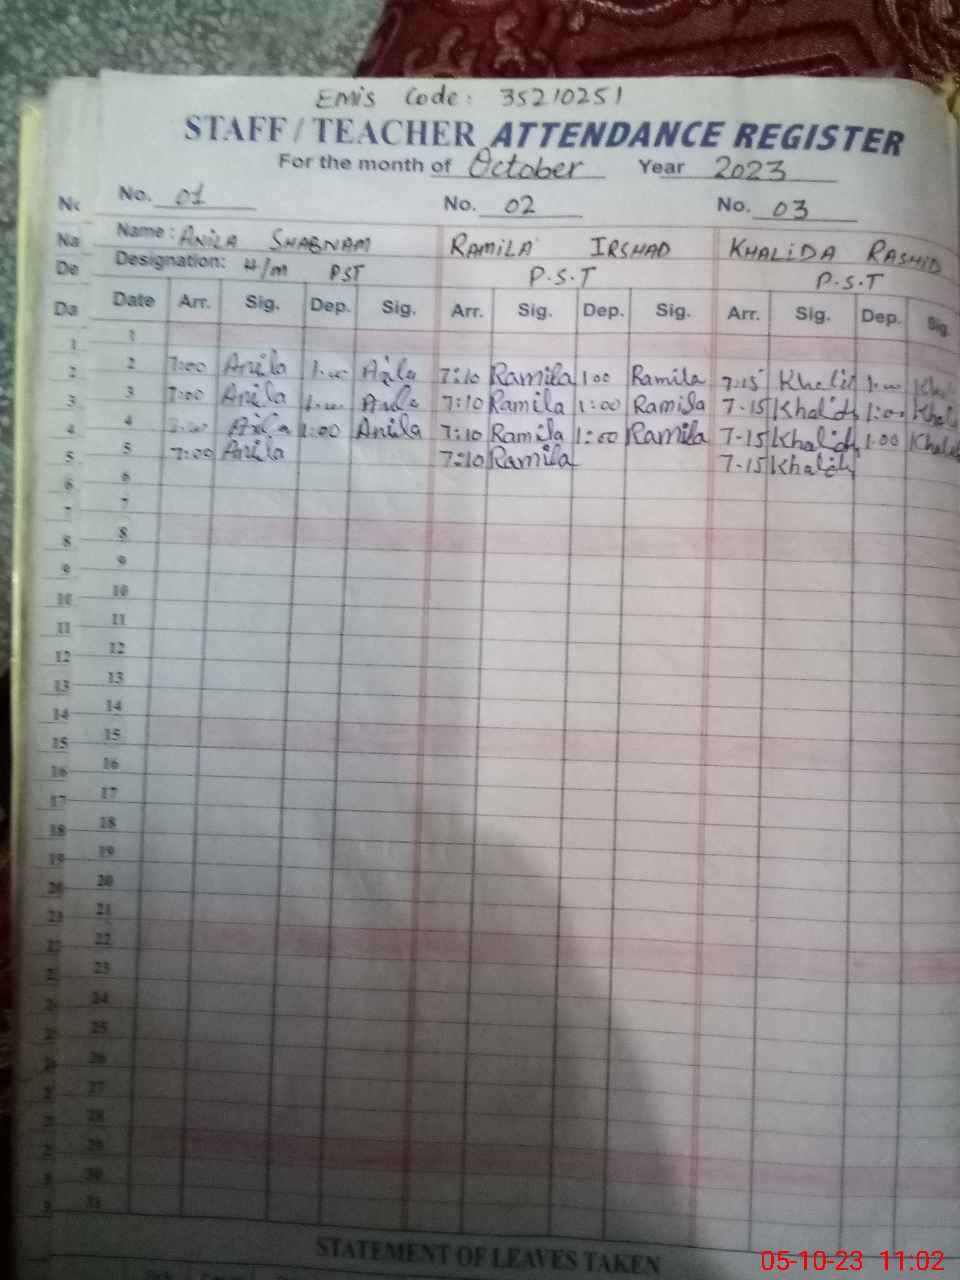 EMIS Code: 35210251
STAFF / TEACHER ATTENDANCE REGISTER
For the month of October Year 2023
No. 01 No. 02 No. 03
Name: ANILA SHABNAM RAMILA IRSHAD KHALIDA RASHID
Designation: H/M PST P.S.T P.S.T
Date Arr. Sig. Dep. Sig. Arr. Sig. Dep. Sig. Arr. Sig. Dep. Sig.
1
2 7:00 Anila 1:00 Anila 7:10 Ramila 1:00 Ramila 7-15 Khalid 1:00
3 7:00 Anila 1:00 Anila 7:10 Ramila 1:00 Ramila 7-15 Khalida 1:00
4 Anila 1:00 Anila 7:10 Ramila 1:00 Ramila 7-15 Khalida 1:00 Khalid
5 7:00 Anila 7:10 Ramila 7-15 Khalida
6
7
8
9
10
11
12
13
14
15
16
17
18
19
20
21
22
23
24
25
26
27
28
29
30
31
STATEMENT OF LEAVES TAKEN
05-10-23 11:02